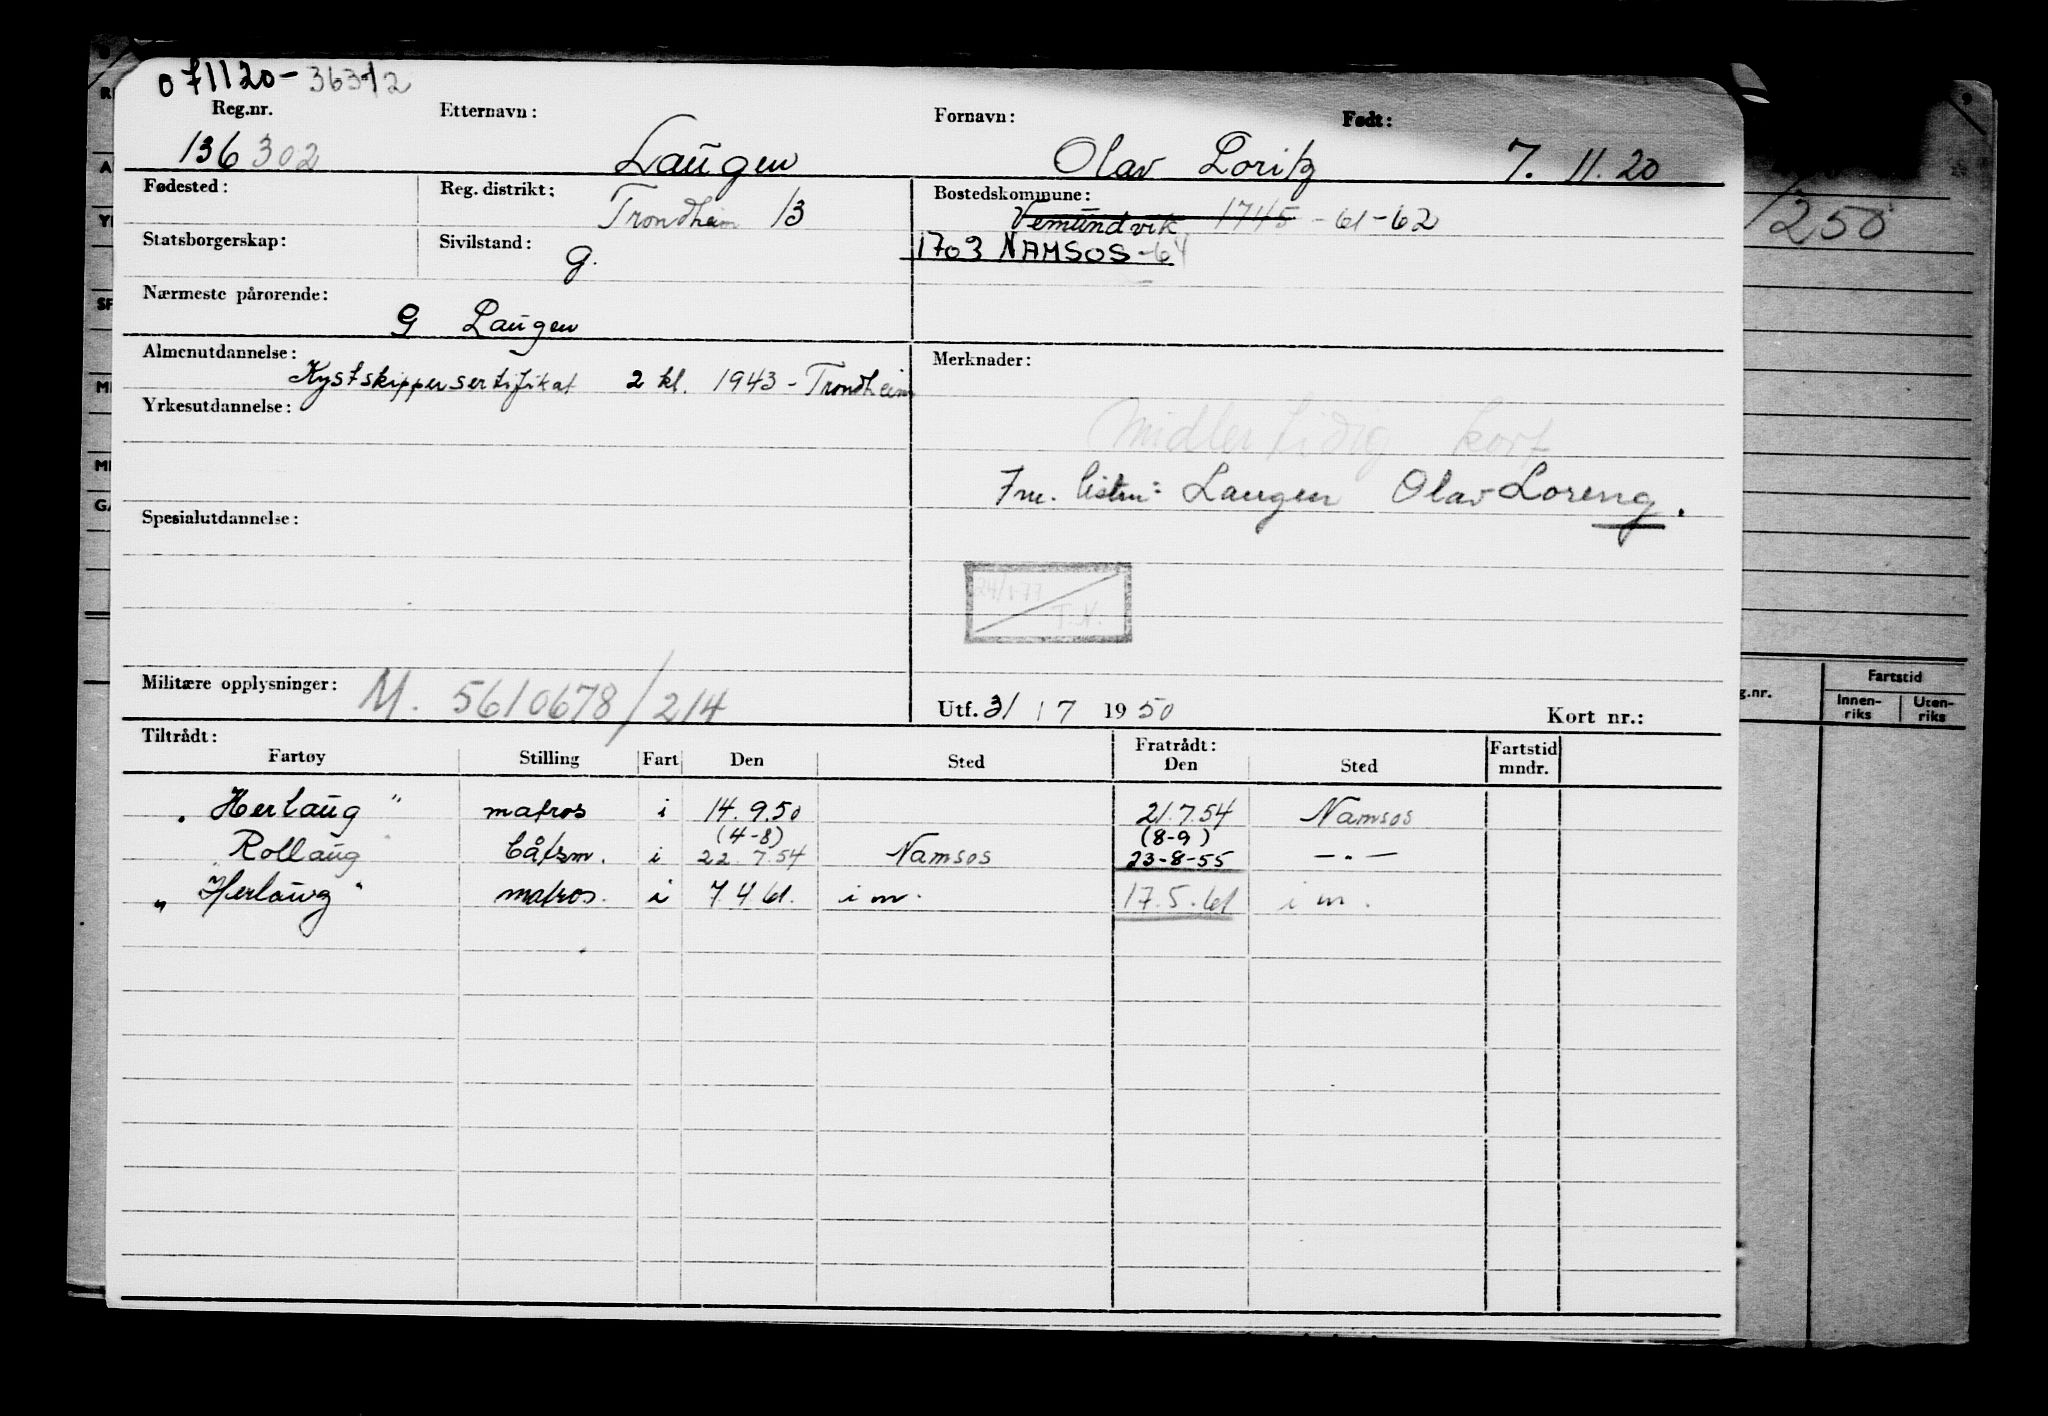 071120-36312
Reg.nr. Etternavn: Fornavn: Født:
136302 Laugen Olav Loritz 7. 11. 20
Fødested: Reg. distrikt: Bostedskommune:
Trondheim 13 Vemundvik 1745 - 61 - 62
Statsborgerskap: Sivilstand: 1703 NAMSOS - 64
g.
Nærmeste pårørende:
G Laugen
Almenutdannelse: Merknader:
Kystskippersertifikat 2 kl. 1943 - Trondheim
Yrkesutdannelse:
Midlertidig kort
Laugen Olav Loreng.
Spesialutdannelse:
T.N.
Militære opplysninger: M. 5610678/214
Utf. 31 / 7 1950 Kort nr.:
Tiltrådt: Fratrådt: Fartstid
Fartøy Stilling Fart Den Sted Den Sted mndr.
"Herlaug" matros i 14. 9. 50 21. 7. 54 Namsos
(4-8) (8-9)
Rollaug båtsm. i 22. 7. 54 Namsos 23-8-55 — " —
"Herlaug" matros. i 7. 4 61. i m. 17. 5. 61 i m.
1250
g.nr. Fartstid
Innen- Uten-
riks riks